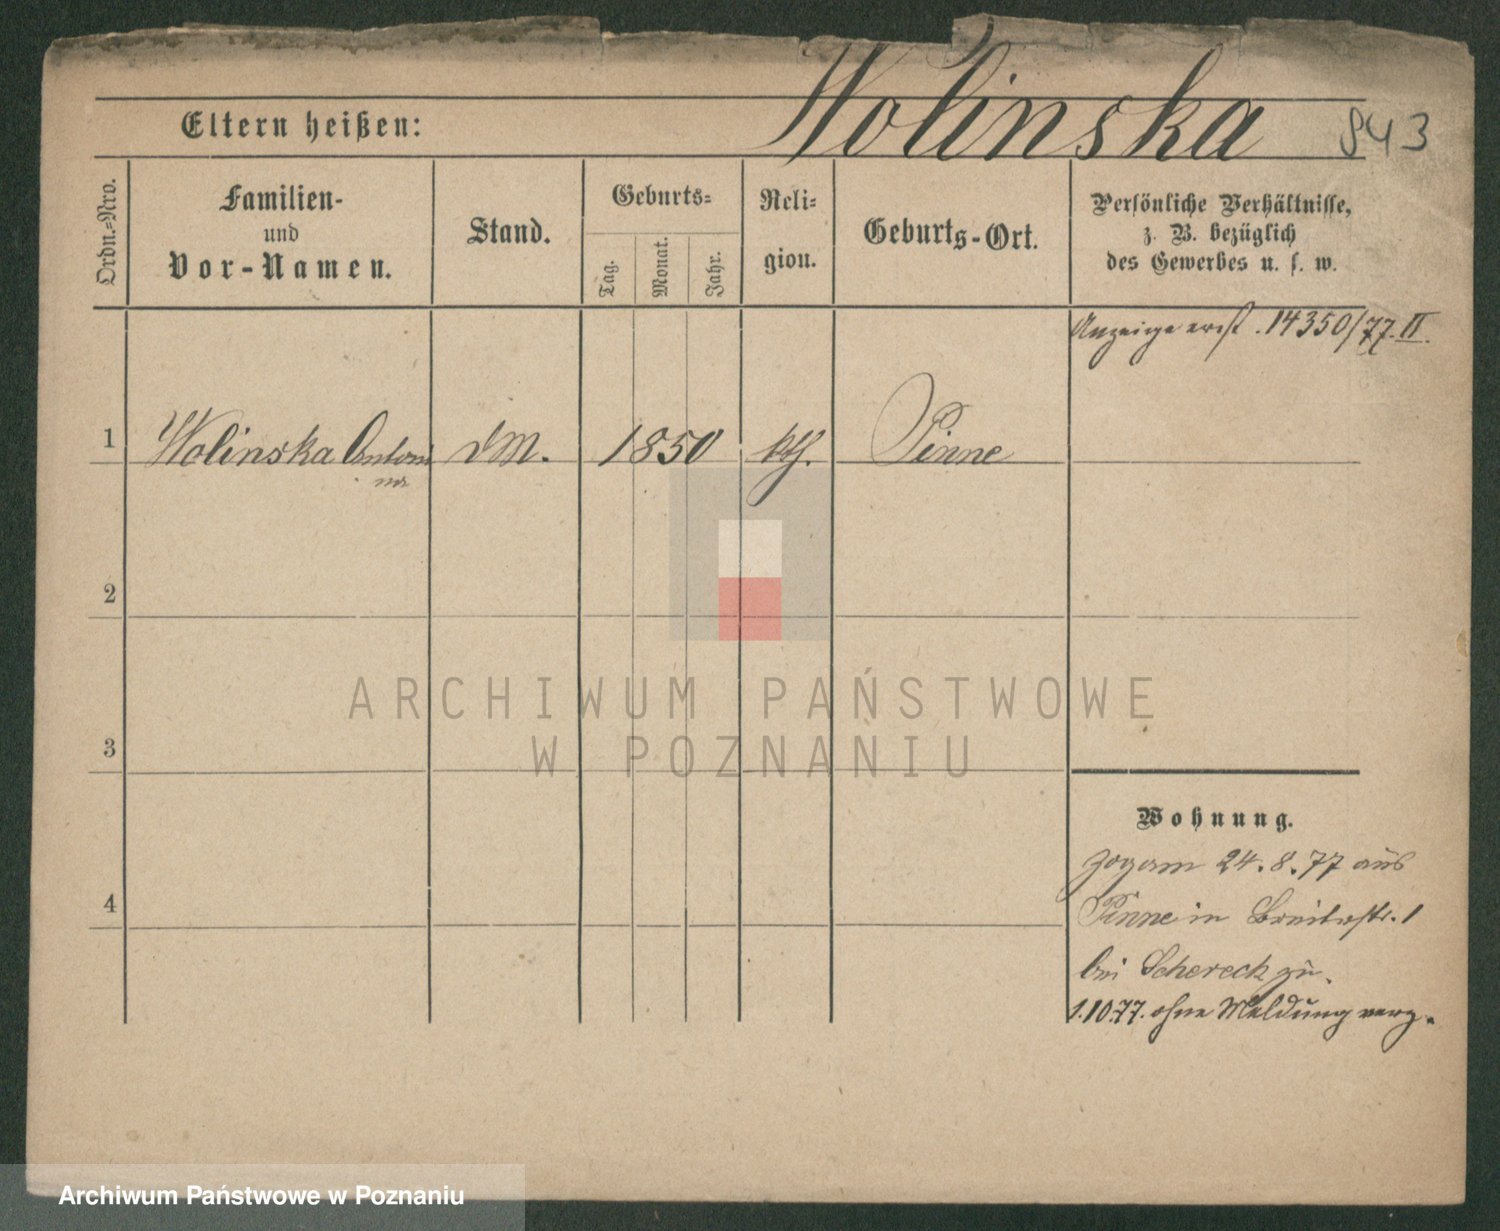 Wolinska
843
Eltern heißen:
Ordn.-Nro.
Familien-
und
Vor-Namen.
Stand.
Geburts-
Tag.
Monat.
Jahr.
Reli-
gion.
Geburts-Ort.
Persönliche Verhältnisse,
z. B. bezüglich
des Gewerbes u. s. w.
Anzeige 14350/77. II.
1
Wolinska Antoni
na
DM.
1850
kth.
Pinne
2
3
4
Wohnung.
zog am 24. 8. 77 aus
Pinne in Breitestr. 1
bei Schereck zu.
1.10.77. ohne Meldung verz.
ARCHIWUM PAŃSTWOWE
W POZNANIU
Archiwum Państwowe w Poznaniu